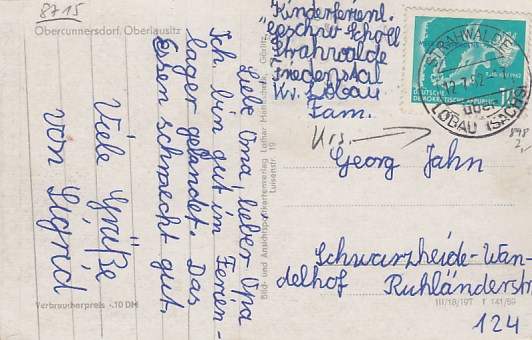 8715
Obercunnersdorf/Oberlausitz
Liebe Oma, lieber Opa
Ich bin gut im Ferien-
lager gelandet. Das
Essen schmeckt gut.
Viele Grüße,
von Sigrid
Verbraucherpreis -.10 DM
Bild- und Ansichtspostkartenverlag Lothar
Görlitz
Luisenstr. 19
Kinderferienl.
"Geschw. Scholl"
Strahwalde
Friedenstal
Kr. Löbau
DEUTSCHE
DEMOKRATISCHE REPUBLIK
STRAHWALDE
über
LÖBAU (SACHS)
Fam.
Georg Jahn
Schwarzheide-Wan-
delhof
Ruhländerstr.
124
III/18/197 T 141/59